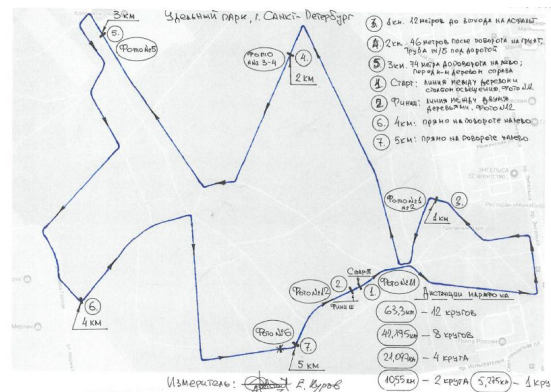 Удельный парк, г. Санкт-Петербург
3 км
5.
Фото №5
Фото №№ 3-4
4.
2 км
3. 1км. 12 метров до выхода на асфальт
4 2км. 46 метров после поворота на грунт,
Труба м/б под дорогой
5 3км. 74 метра до поворота налево;
1 Старт: линия между деревом и
столбом освещения. Фото №11
2 Финиш: линия между двумя
деревьями. Фото №12
6. 4км: прямо на повороте налево
7. 5км: прямо на повороте налево
Фото №1
№2
3.
1 км
Старт
2
1
Фото №11
Фото №12
Финиш
6.
4 км
Фото №6
7.
5 км
Дистанции марафона
63,3км - 12 кругов
42,195км - 8 кругов
21,097км - 4 круга
10,55 км - 2 круга 5,275км - 1 кру
Измеритель: Е. Куров